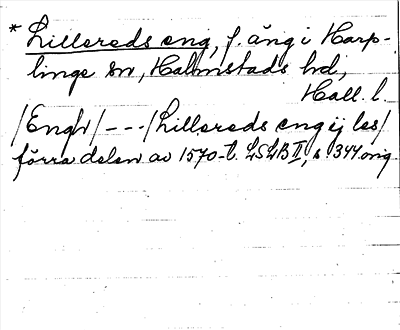 * Lillereds eng, f. äng i Harp-
linge sn, Halmstads hd,
Hall. l.
/Engh/ --- /Lillereds eng ij les/
förra delen av 1570-t. LSLB II, s 344 orig